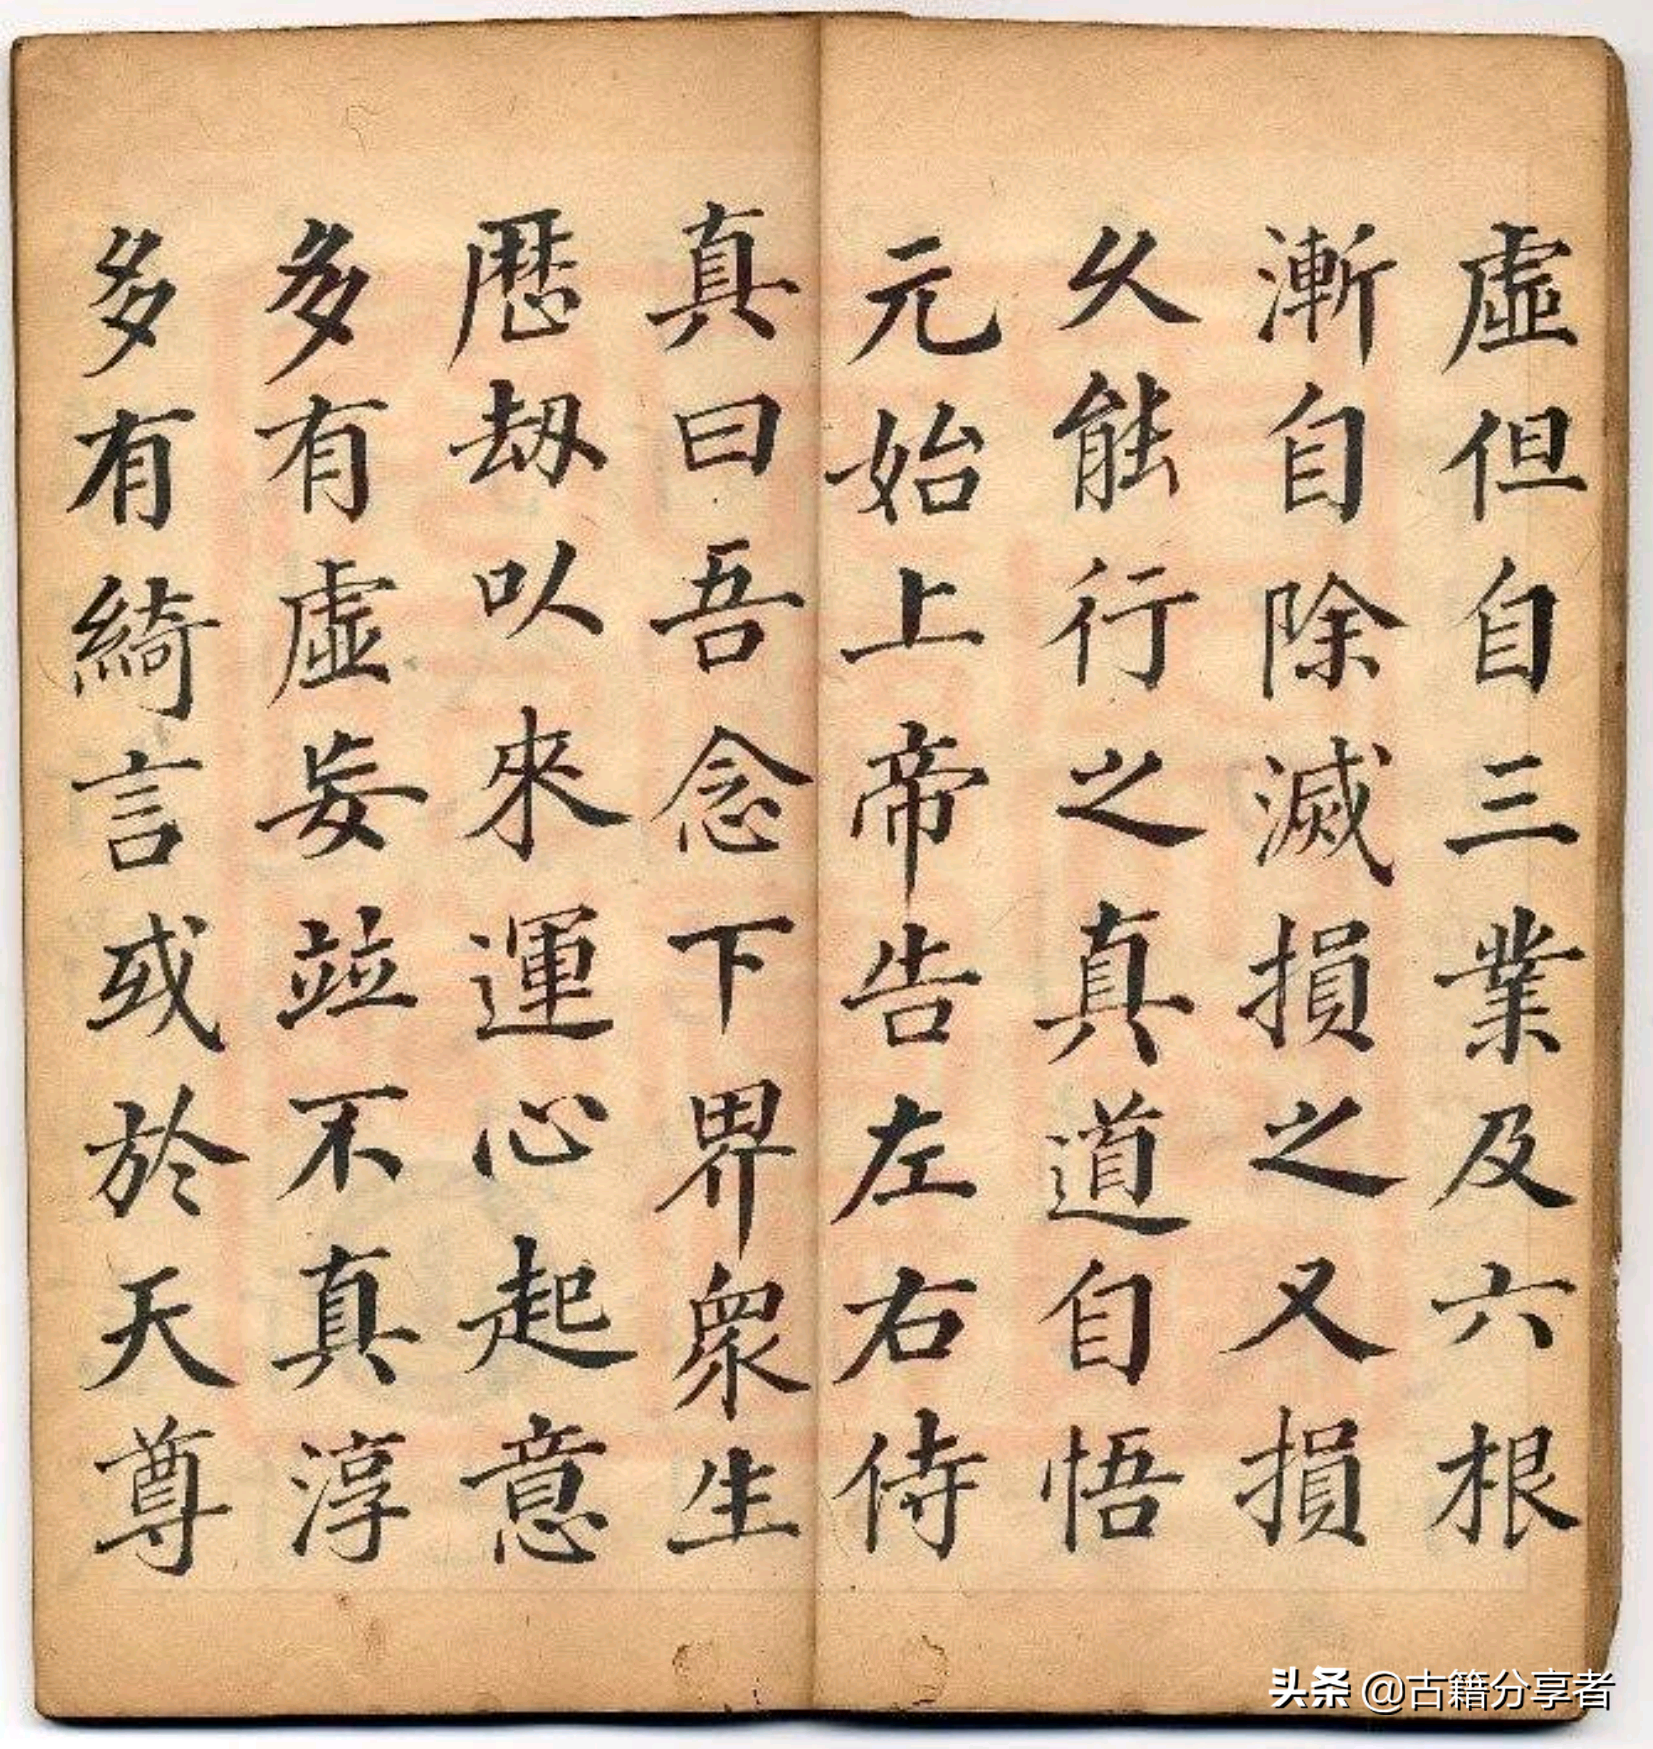 虛但自三業及六根
漸自除滅損之又損
久能行之真道自悟
元始上帝告左右侍
真曰吾念下界眾生
歷劫以來運心起意
多有虛妄竝不真淳
多有綺言或於天尊
头条 @古籍分享者